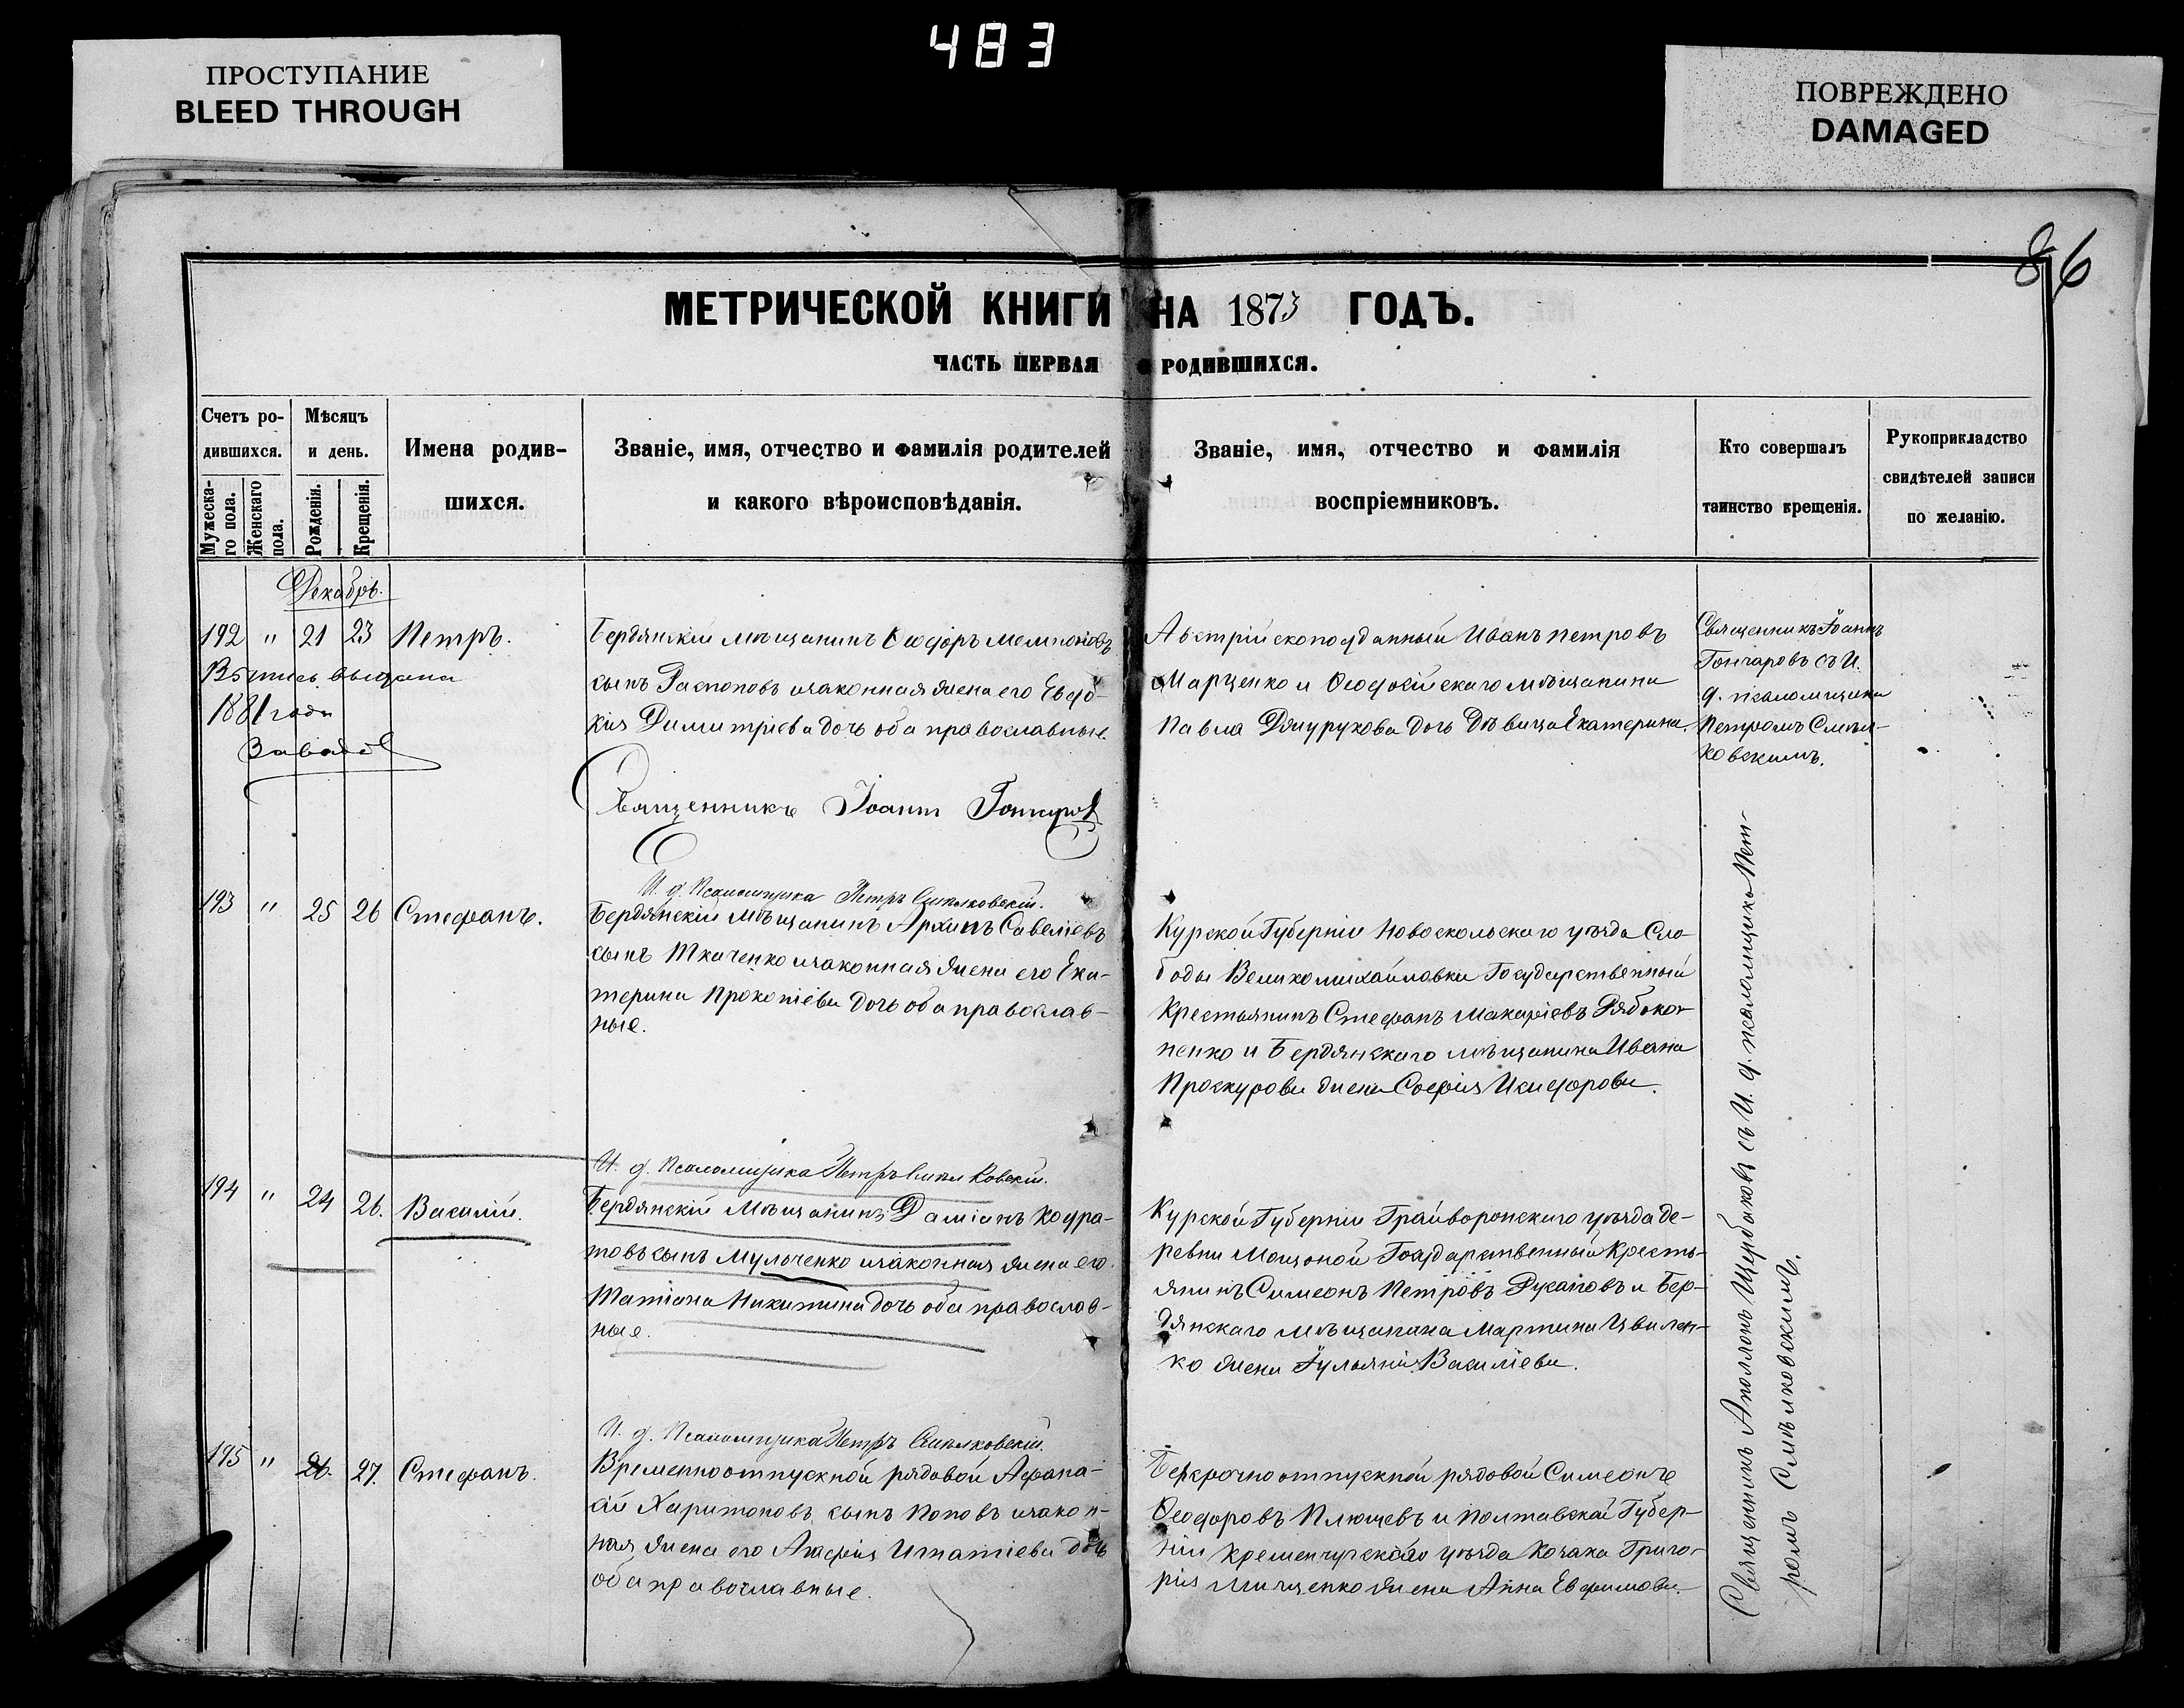 483
ПРОСТУПАНИЕ
BLEED THROUGH
ПОВРЕЖДЕНО
DAMAGED
86
МЕТРИЧЕСКОЙ КНИГИ НА 1873 ГОДЪ.
ЧАСТЬ ПЕРВАЯ О РОДИВШИХСЯ.
Счетъ ро-
дившихся.
Мужеска-
го пола.
Женскаго
пола.
Мѣсяцъ
и день.
Рожденія.
Крещенія.
Имена родив-
шихся.
Званіе, имя, отчество и фамилія родителей
и какого вѣроисповѣданія.
Званіе, имя, отчество и фамилія
воспріемниковъ.
Кто совершалъ
таинство крещенія.
Рукоприкладство
свидѣтелей записи
по желанію.
Декабрь.
192 " 21 23 Петръ.
выдана
1881 года
Бердянскій мѣщанинъ Ѳеодоръ
сынъ Распоповъ изаконная жена его Евдо-
кія Димитріева дочь оба православные.
Австрійскоподданный Иванъ Петровъ
Марценко и Ѳеодосійскаго мѣщанина
Павла дочь Дѣвица Екатерина.
Священникъ Іоаннъ
Гончаровъ съ И.
д. псаломщика
Петромъ Смѣл-
ковскимъ.
Священникъ Іоаннъ Гончаровъ
И. д. Псаломщика Петръ Смѣлковскій.
193 " 25 26 Стефанъ.
Бердянскій мѣщанинъ Архипъ Савеліевъ
сынъ Ткаченко изаконная жена его Ека-
терина Прокопіева дочь оба православ-
ные.
Курской Губерніи Новоскольскаго уѣзда Сло-
боды Великомихайловки Государственный
Крестьянинъ Стефанъ Макаріевъ Рябоко-
ненко и Бердянскаго мѣщанина Ивана
Проскурова жена Софія Никифорова.
И. д. Псаломщика Петръ Смѣлковскій.
194 " 24 26. Василій.
Бердянскій Мѣщанинъ Даміанъ Кодра-
товъ сынъ Мульченко изаконная жена его
Татіана Никитина дочь оба православ-
ные.
Курской Губерніи Грайворонскаго уѣзда де-
ревни Мощоной Государственный Кресть-
янинъ Симеонъ Петровъ и Бер-
дянскаго мѣщанина Мартина Цвилен-
ко жена Іульянія Василіева.
И. д. Псаломщика Петръ Смѣлковскій.
195 " 26. 27. Стефанъ.
Временноотпускной рядовой Афана-
сій Харитоновъ сынъ Поповъ изакон-
ная жена его Агафія Игнатіева дочь
оба православные.
Безсрочноотпускной рядовой Симеонъ
Ѳеодоровъ Плющевъ и Полтавской Губер-
ніи Кременчугскаго уѣзда Козака Григо-
рія Мищенко жена Анна Евфимова.
Священникъ Аполлонъ Щербаковъ съ И. д. псаломщика Пет-
ромъ Смѣлковскимъ.